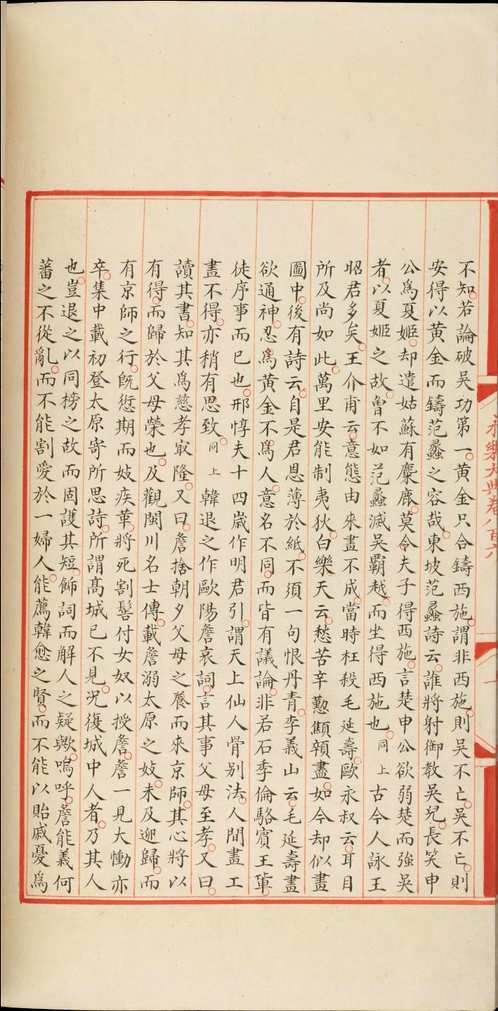 永樂大典卷八百六
不知若論破吳功第一黃金只合鑄西施謂非西施則吳不亡吳不亡則
安得以黃金而鑄范蠡之容哉東坡范蠡詩云誰將射御教吳兒長笑申
公爲夏姬却遣姑蘇有麋鹿莫令夫子得西施言楚申公欲弱楚而強吳
者以夏姬之故魯不如范蠡滅吳霸越而坐得西施也同上古今人詠王
昭君多矣王介甫云意態由來畫不成當時枉殺毛延壽歐永叔云耳目
所及尚如此萬里安能制夷狄白樂天云愁苦辛懃顦顇盡如今却似畫
圖中後有詩云自是君恩薄於紙不須一句恨丹青李義山云毛延壽畫
欲通神忍爲黃金不爲人意名不同而皆有議論非若石季倫駱賓王軰
徒序事而已也邢惇夫十四歲作明君引謂天上仙人骨别法人間畫工
畫不得亦稍有思致同上韓退之作歐陽詹哀詞言其事父母至孝又曰
讀其書知其爲慈孝㝡隆又曰詹捨朝夕父母之養而來京師其心將以
有得而歸於父母榮也及觀閩川名士傳載詹溺太原之妓未及迎歸而
有京師之行旣愆期而妓疾革將死割髻付女奴以授詹詹一見大慟亦
卒集中載初登太原寄所思詩所謂髙城已不見况復城中人者乃其人
也豈退之以同榜之故而固護其短飾詞而解人之疑歟嗚呼詹能義何
蕃之不從亂而不能割愛於一婦人能薦韓愈之賢而不能以貽戚憂爲